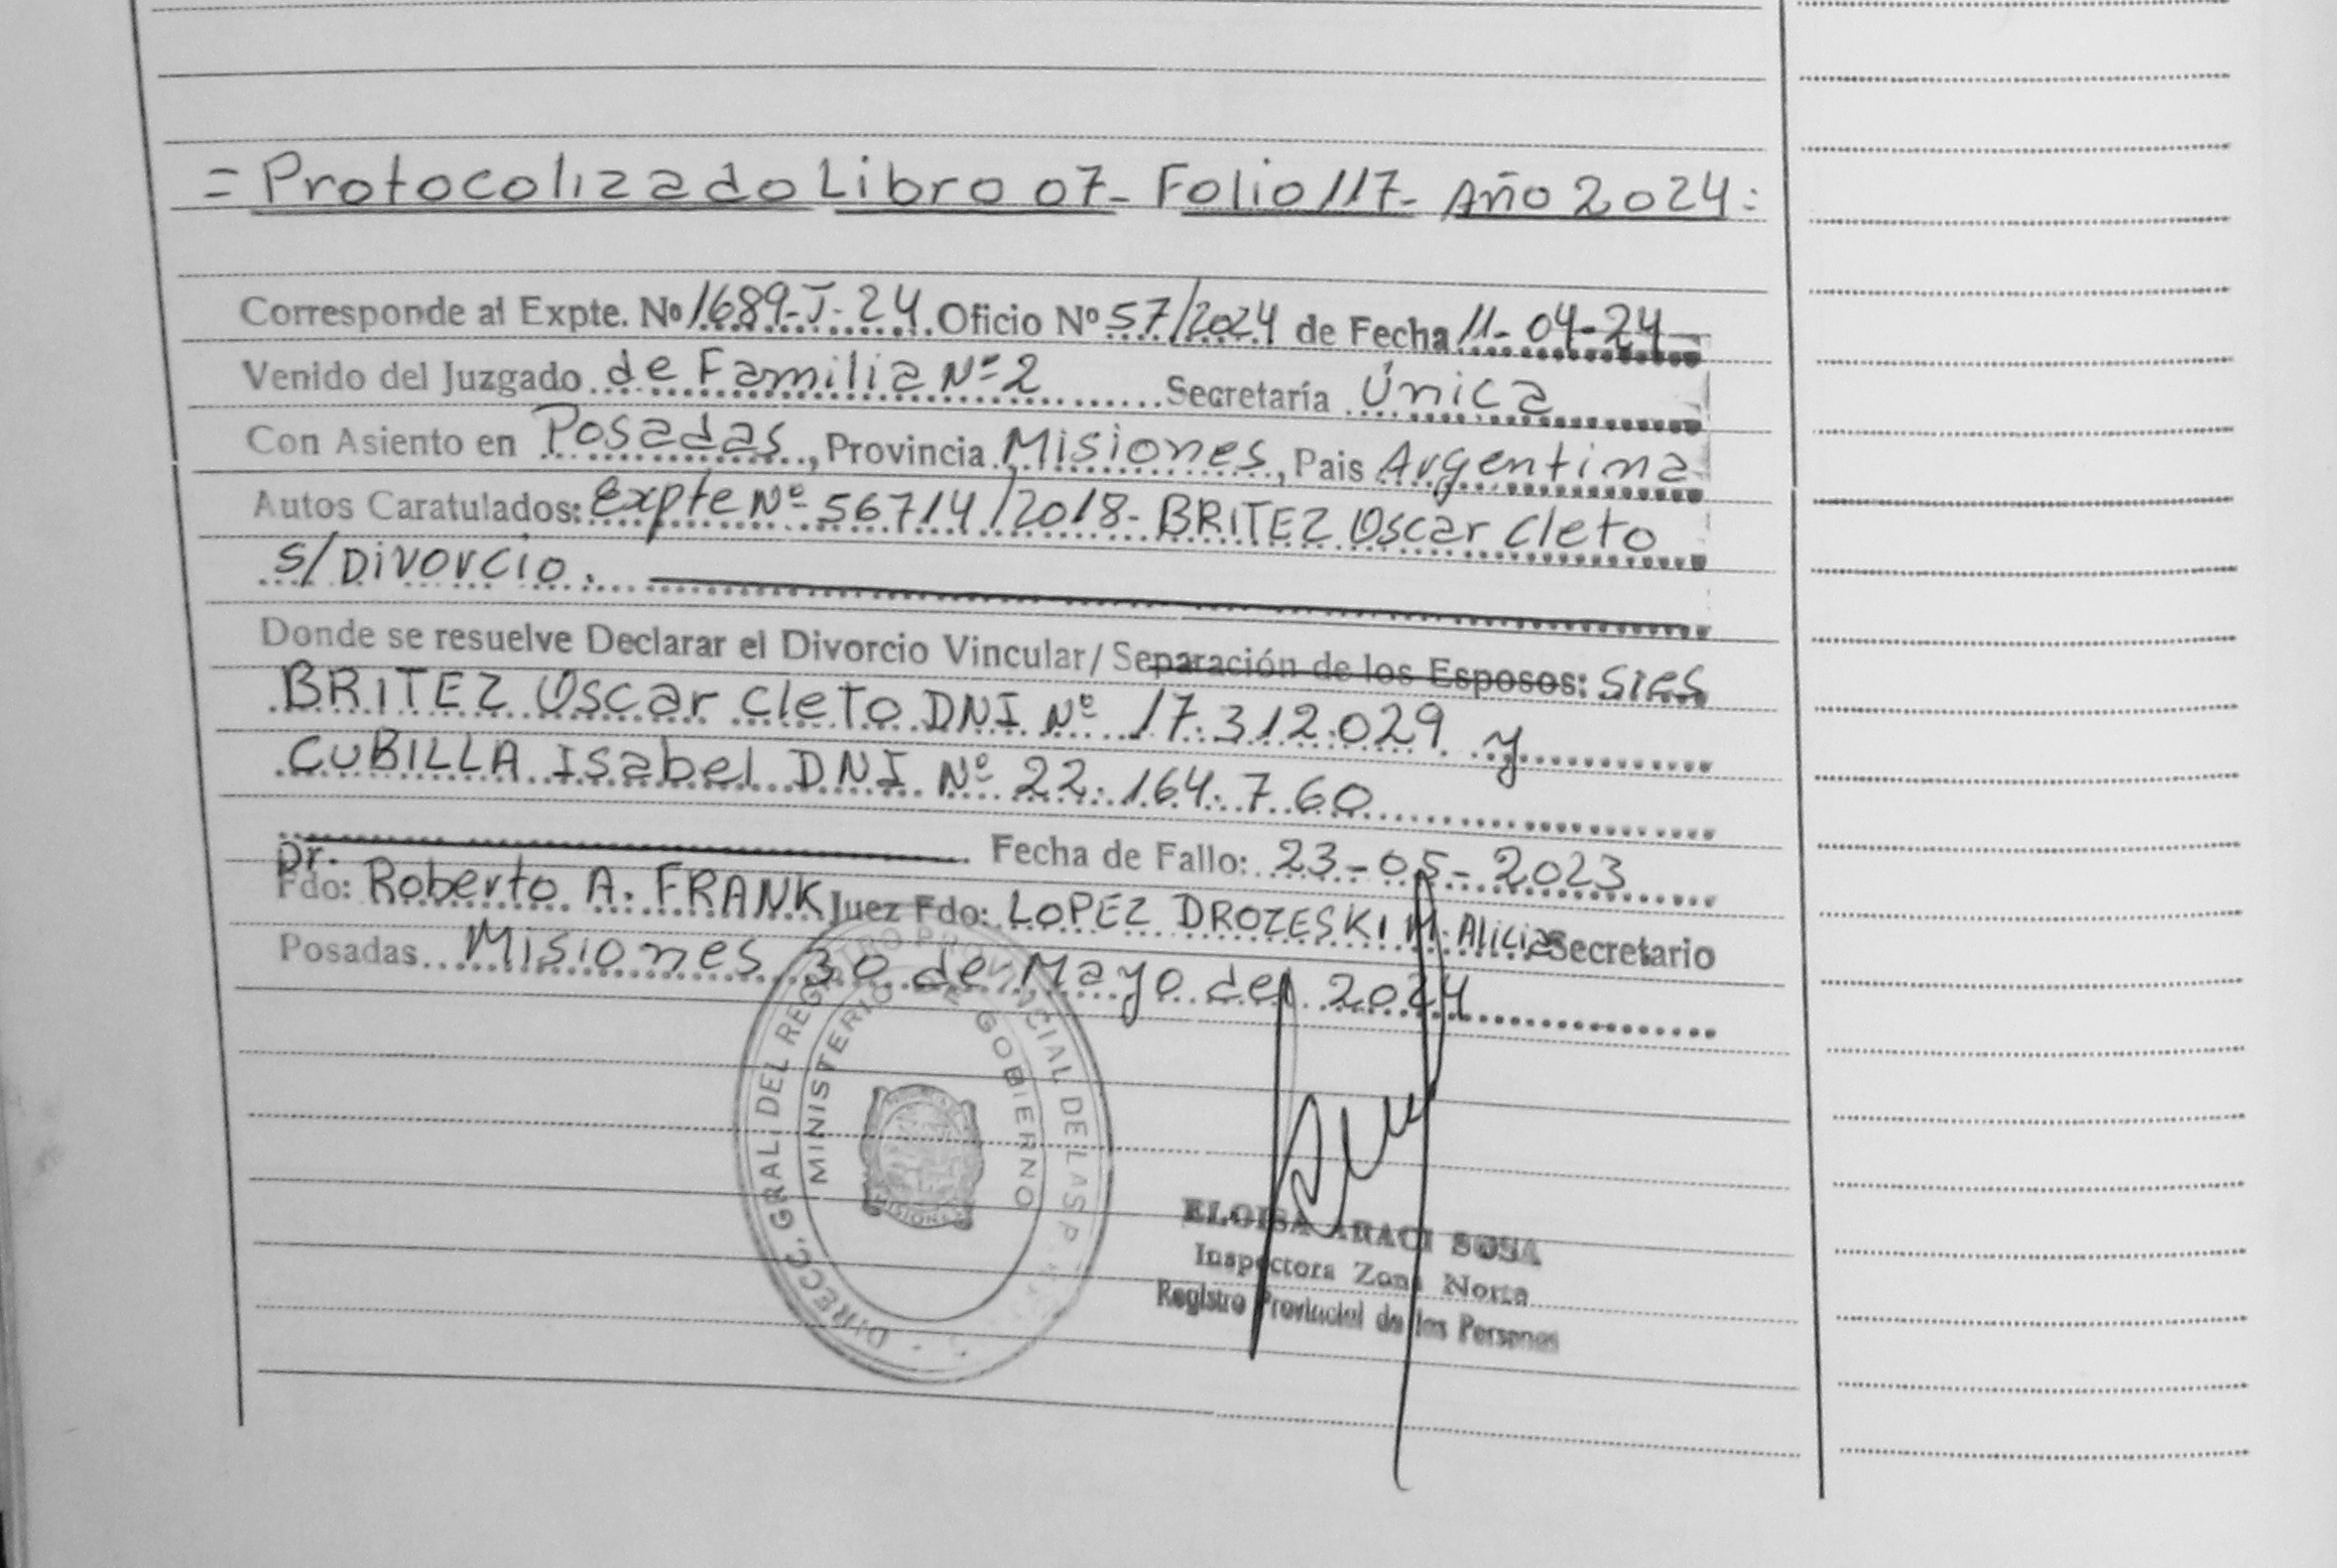 = Protocolizado Libro 07- Folio 117- Año 2024:
Corresponde al Expte. Nº 1689-J-24 Oficio Nº 57/2024 de Fecha 11-04-24
Venido del Juzgado de Familia Nº 2 Secretaría Única
Con Asiento en Posadas, Provincia Misiones, Pais Argentina
Autos Caratulados: Expte Nº 56714/2018- BRITEZ Oscar Cleto
s/ Divorcio.
Donde se resuelve Declarar el Divorcio Vincular/ Separación de los Esposos: Sres
BRITEZ Oscar Cleto DNI Nº 17.312.029 y
CUBILLA Isabel DNI Nº 22.164.760
Fecha de Fallo: 23-05-2023
Dr.
Fdo: Roberto A. FRANK Juez Fdo: LOPEZ DROZESKI M. Alicia Secretario
Posadas Misiones 30 de Mayo del 2024
DIRECC. GRAL. DEL REGISTRO PROVINCIAL DE LAS P
MINISTERIO DE GOBIERNO
MISIONES
ELOISA ARACI SOSA
Inspectora Zona Norte
Registro Provincial de las Personas